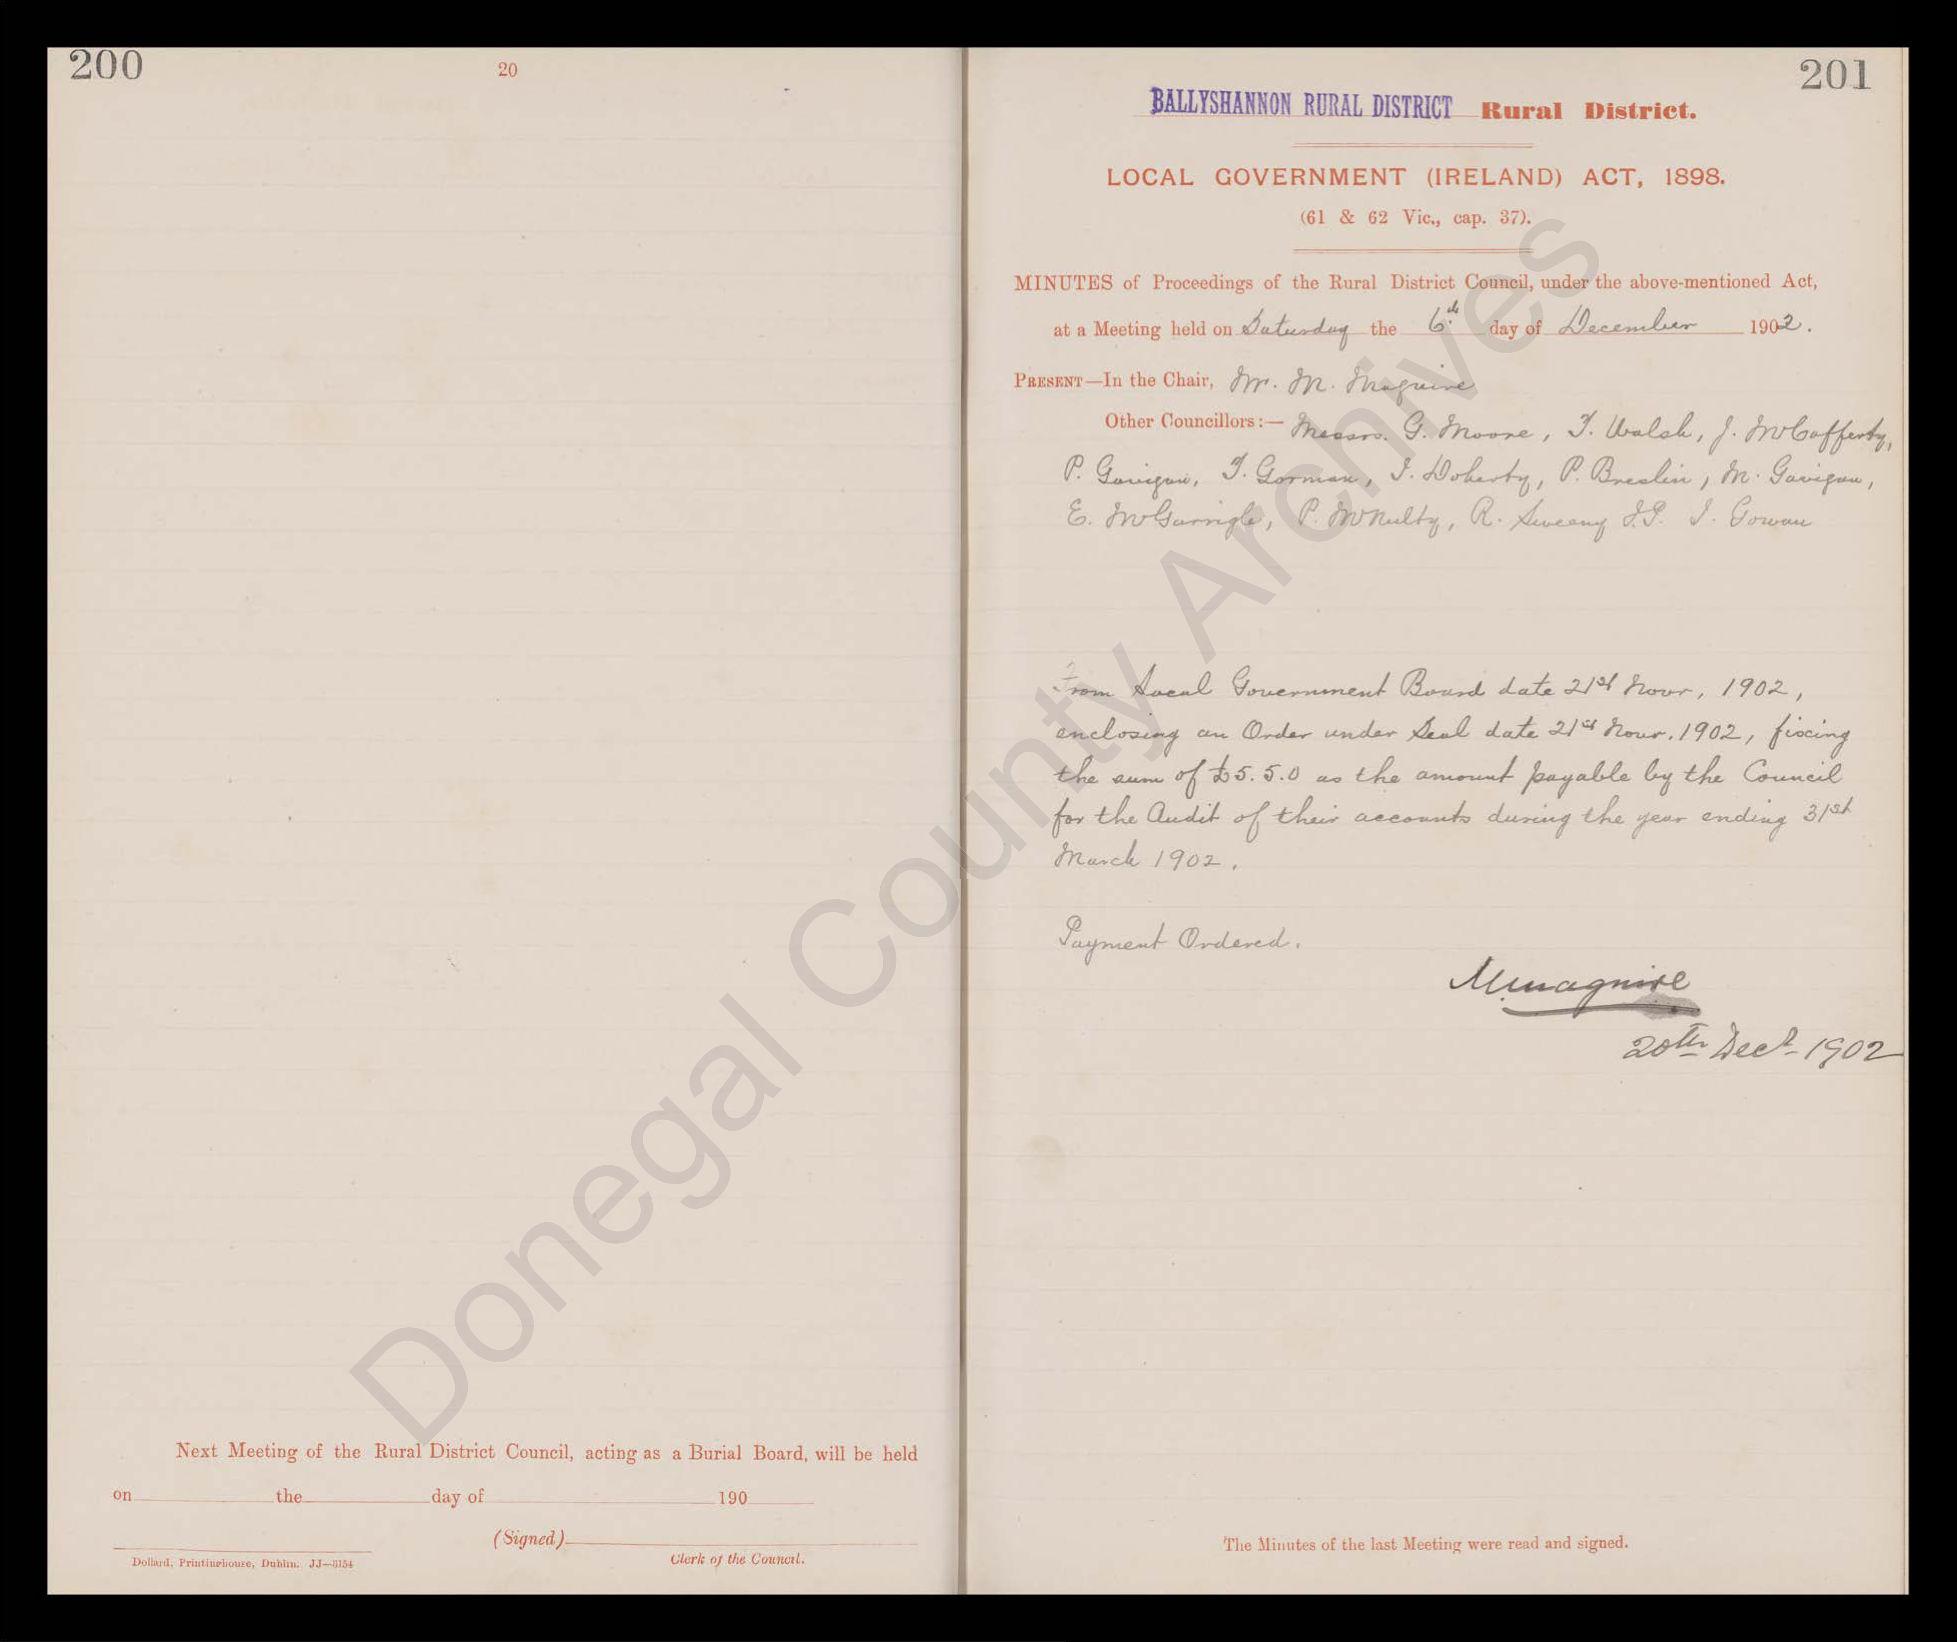 200
20
Next Meeting of the Rural District Council, acting as a Burial Board, will be held
on the day of 190
(Signed)
Clerk of the Council.
Dollard, Printinghouse, Dublin. JJ—3154
201
BALLYSHANNON RURAL DISTRICT Rural District.
LOCAL GOVERNMENT (IRELAND) ACT, 1898.
(61 & 62 Vic., cap. 37).
MINUTES of Proceedings of the Rural District Council, under the above-mentioned Act,
at a Meeting held on Saturday the 6th day of December 1902.
PRESENT—In the Chair, Mr. M. Maguire
Other Councillors:— Messrs. G. Moore, T. Walsh, J. McCafferty,
P. Gavigan, T. Gorman, J. Doherty, P. Breslin, M. Gavigan,
E. McGarrigle, P. McNulty, R. Sweeny J.P. J. Gowan
From Local Government Board date 21st Novr, 1902,
enclosing an Order under Seal date 21st Novr. 1902, fixing
the sum of £5.5.0 as the amount payable by the Council
for the Audit of their accounts during the year ending 31st
March 1902.
Payment Ordered.
M. Maguire
20th Decr 1902
The Minutes of the last Meeting were read and signed.
Donegal County Archives